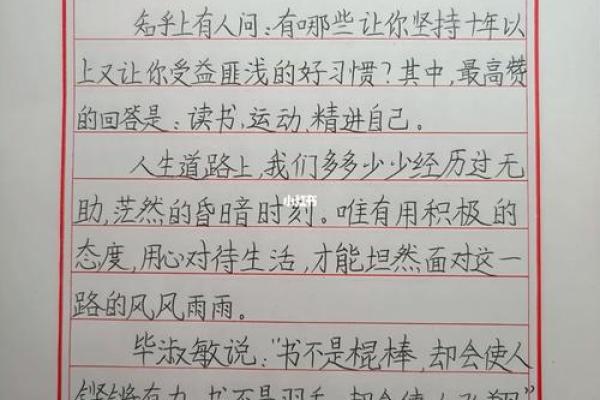 知乎上有人问：有哪些让你坚持十年以
上又让你受益匪浅的好习惯？其中，最高赞
的回答是：读书、运动、精进自己。
人生道路上，我们多多少少经历过无
助，茫然的昏暗时刻。唯有用积极的
小红书
态度，用心对待生活，才能坦然面对这一
路的风风雨雨。
毕淑敏说："书不是棍棒，却会使人
铿锵有力，书不是羽毛，却会使人飞翔"